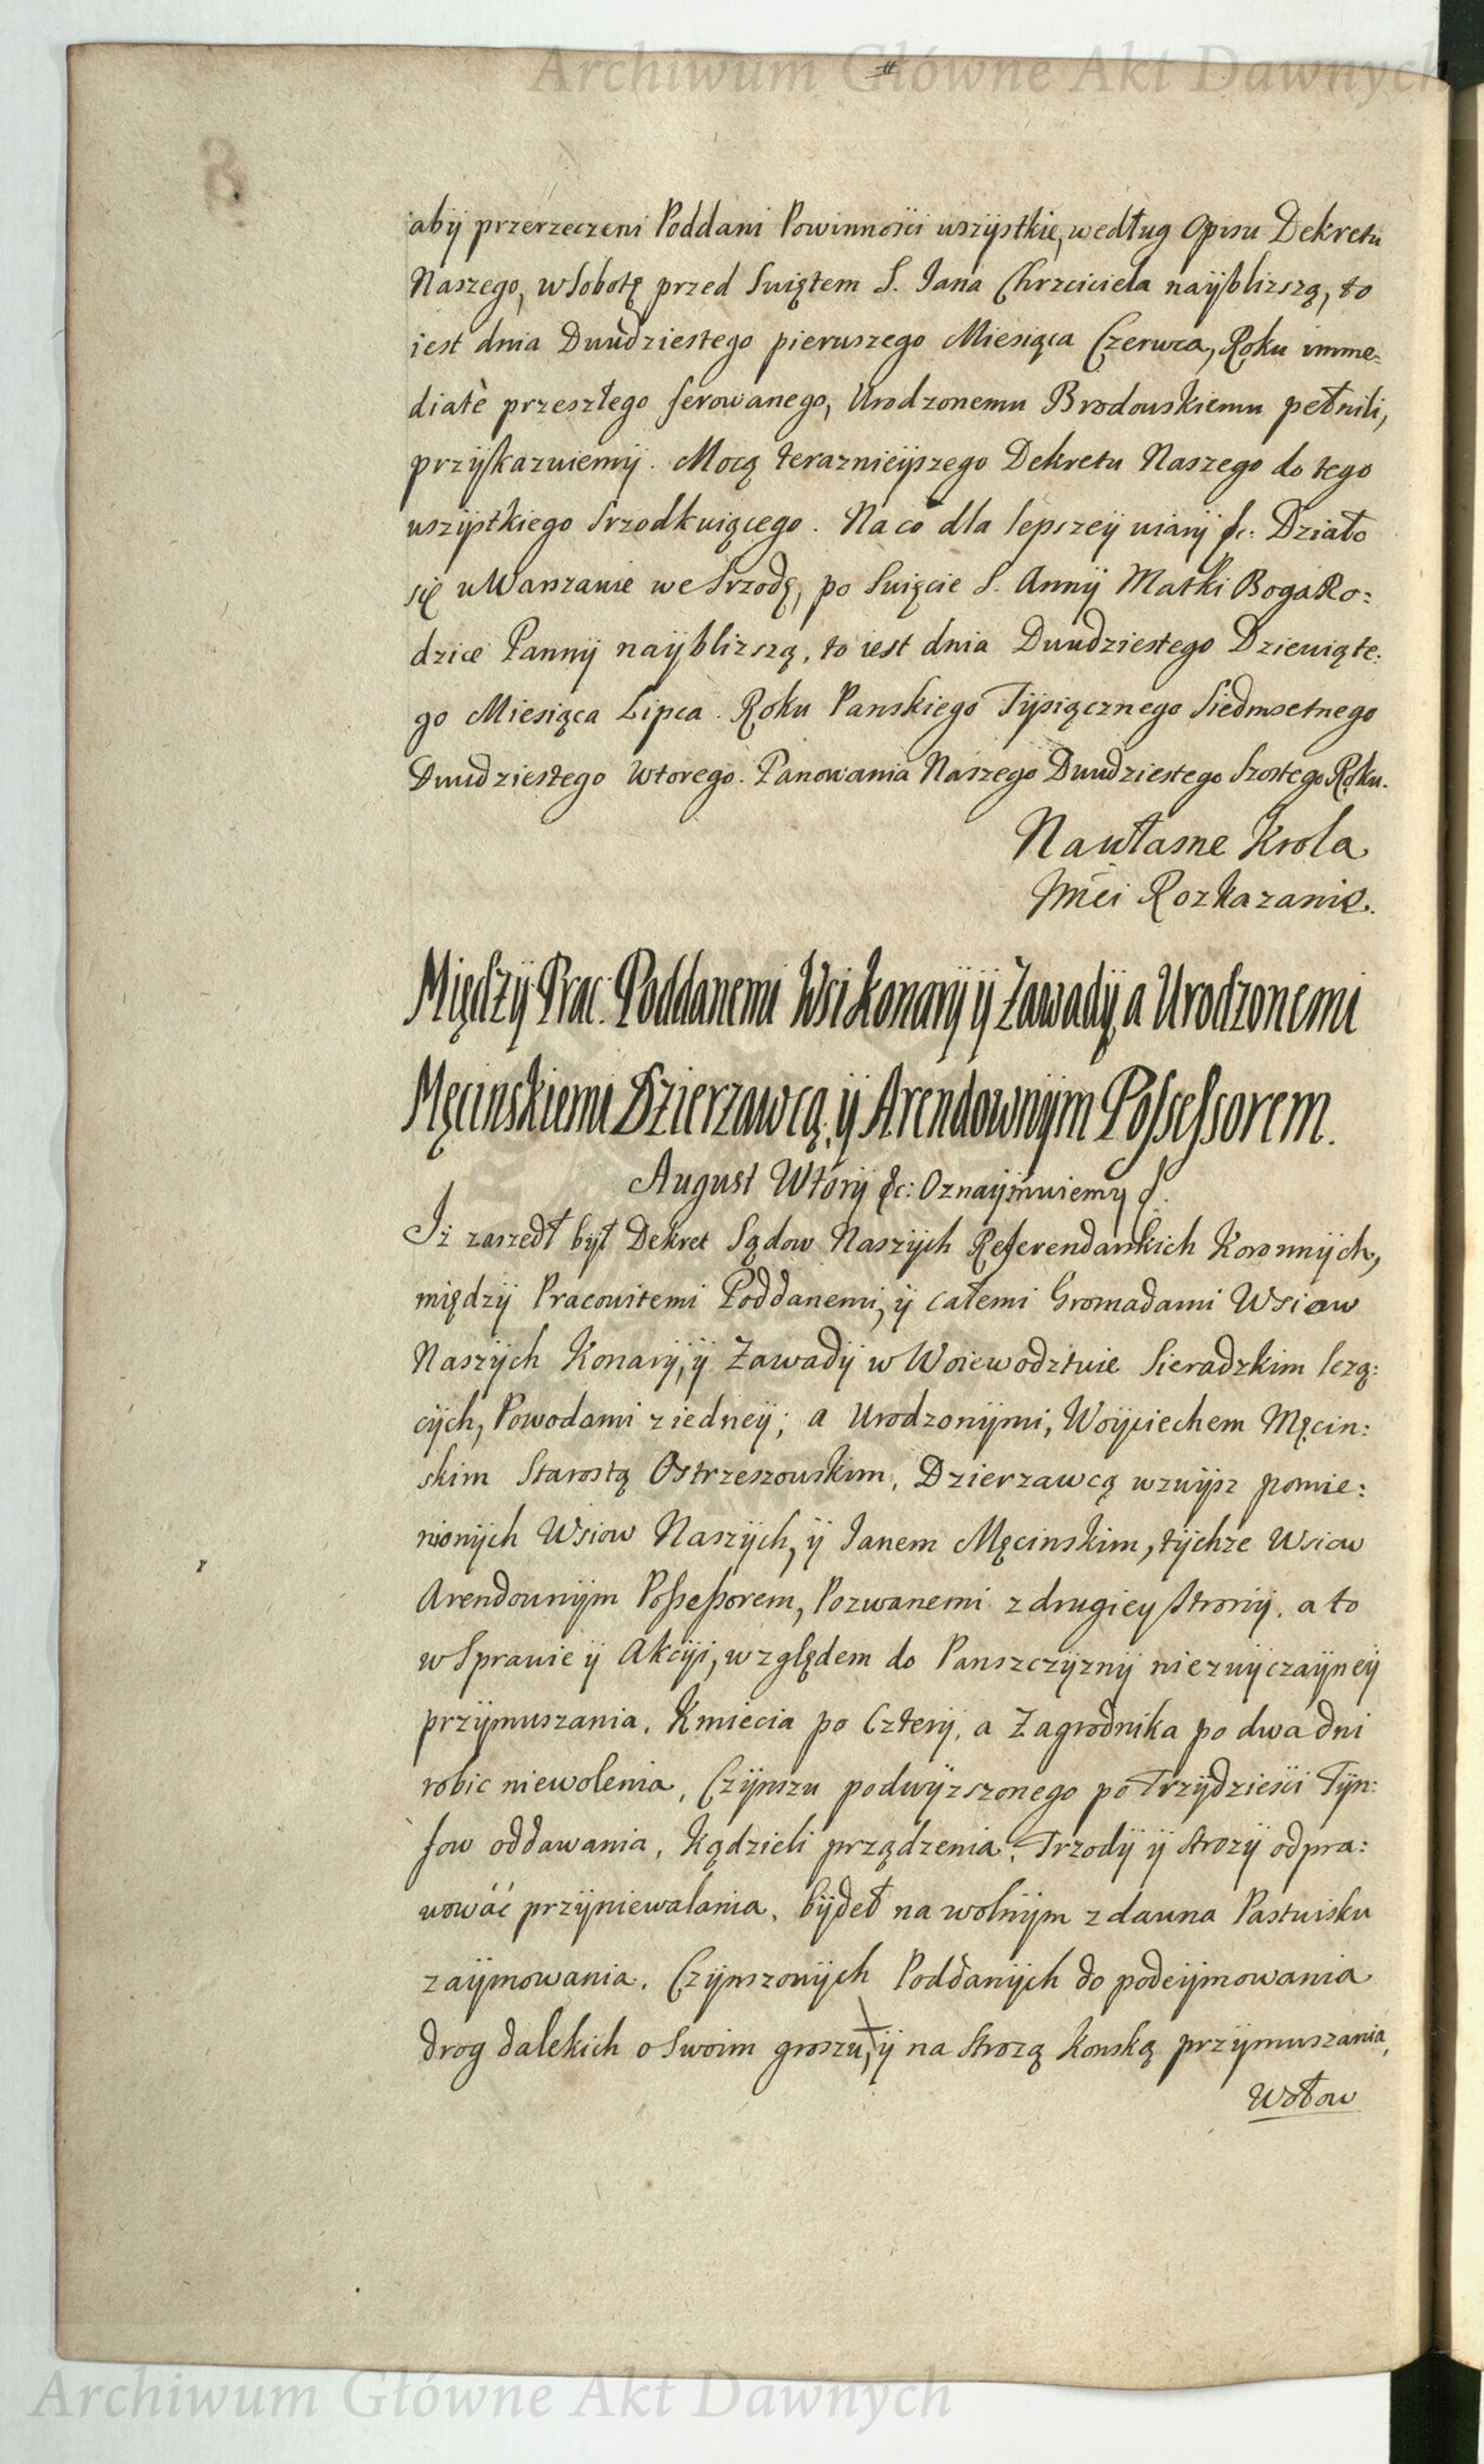 Archiwum Główne Akt Dawnych
#
8
abÿ przerzeczeni Poddani Powinnosći wszÿstkie, według Opisu Dekretu
Naszego, w Sobotę przed Swiętem S. Jana Chrzciciela naÿblizszą, to
iest dnia Dwudziestego pierwszego Miesiąca Czerwca, Roku imme=
diatè przeszłego ferowanego, Urodzonemu Brodowskiemu pełnili,
przÿkazuiemÿ. Mocą teraznieÿszego Dekretu Naszego do tego
wszÿstkiego srzodkuiącego. Na co dla lepszeÿ wiarÿ &c: Działo
się w Warszawie we Srzodę, po Swięcie S. Annÿ Matki BogaRo=
dzice Pannÿ naÿblizszą, to iest dnia Dwudziestego Dziewiąte:
go Miesiąca Lipca. Roku Panskiego Tÿsiącznego Siedmsetnego
Dwudziestego Wtorego. Panowania Naszego Dwudziestego Szostego Roku.
Na własne Krola
Jmći Rozkazanie.
Międzÿ Prac: Poddanemi Wsi Konarÿ ÿ Zawadÿ, a Urodzonemi
Męcinskiemi Dzierzawcą, ÿ Arendownÿm Possessorem.
August Wtórÿ &c: Oznaÿmuiemy &.
Iż zaszedł bÿł Dekret Sądow Naszÿch Referendarskich Koronnÿch,
międzÿ Pracowitemi Poddanemi, ÿ całemi Gromadami Wsiow
Naszÿch Konarÿ, ÿ Zawadÿ w Woiewodztwie Sieradzkim lezą:
cÿch, Powodami z iedneÿ; a Urodzonÿmi, Woÿciechem Męcin:
skim Starostą Ostrzeszowskim, Dzierzawcą wzwÿsz pomie:
nionÿch Wsiow Naszÿch, ÿ Janem Męcinskim, tÿchze Wsiow
Arendownÿm Possessorem, Pozwanemi z drugiey stronÿ. a to
w Sprawie ÿ Akcÿi, względem do Panszczÿznÿ niezwÿczaÿneÿ
przÿmuszania, Kmiecia po Czterÿ, a Zagrodnika po dwa dni
robic niewolenia, Czÿnszu podwÿzszonego po Trzÿdziesći Tÿn:
fow oddawania, Kądzieli przędzenia, Trzodÿ ÿ strozÿ odpra:
wowáć przÿniewalania, bÿdeł na wolnÿm zdawna Pastwisku
zaÿmowania. Czÿnszowÿch Poddanÿch do podeÿmowania
drog dalekich o Swoim groszu, ÿ na strozą konską przÿmuszania,
Wołow
Archiwum Główne Akt Dawnych